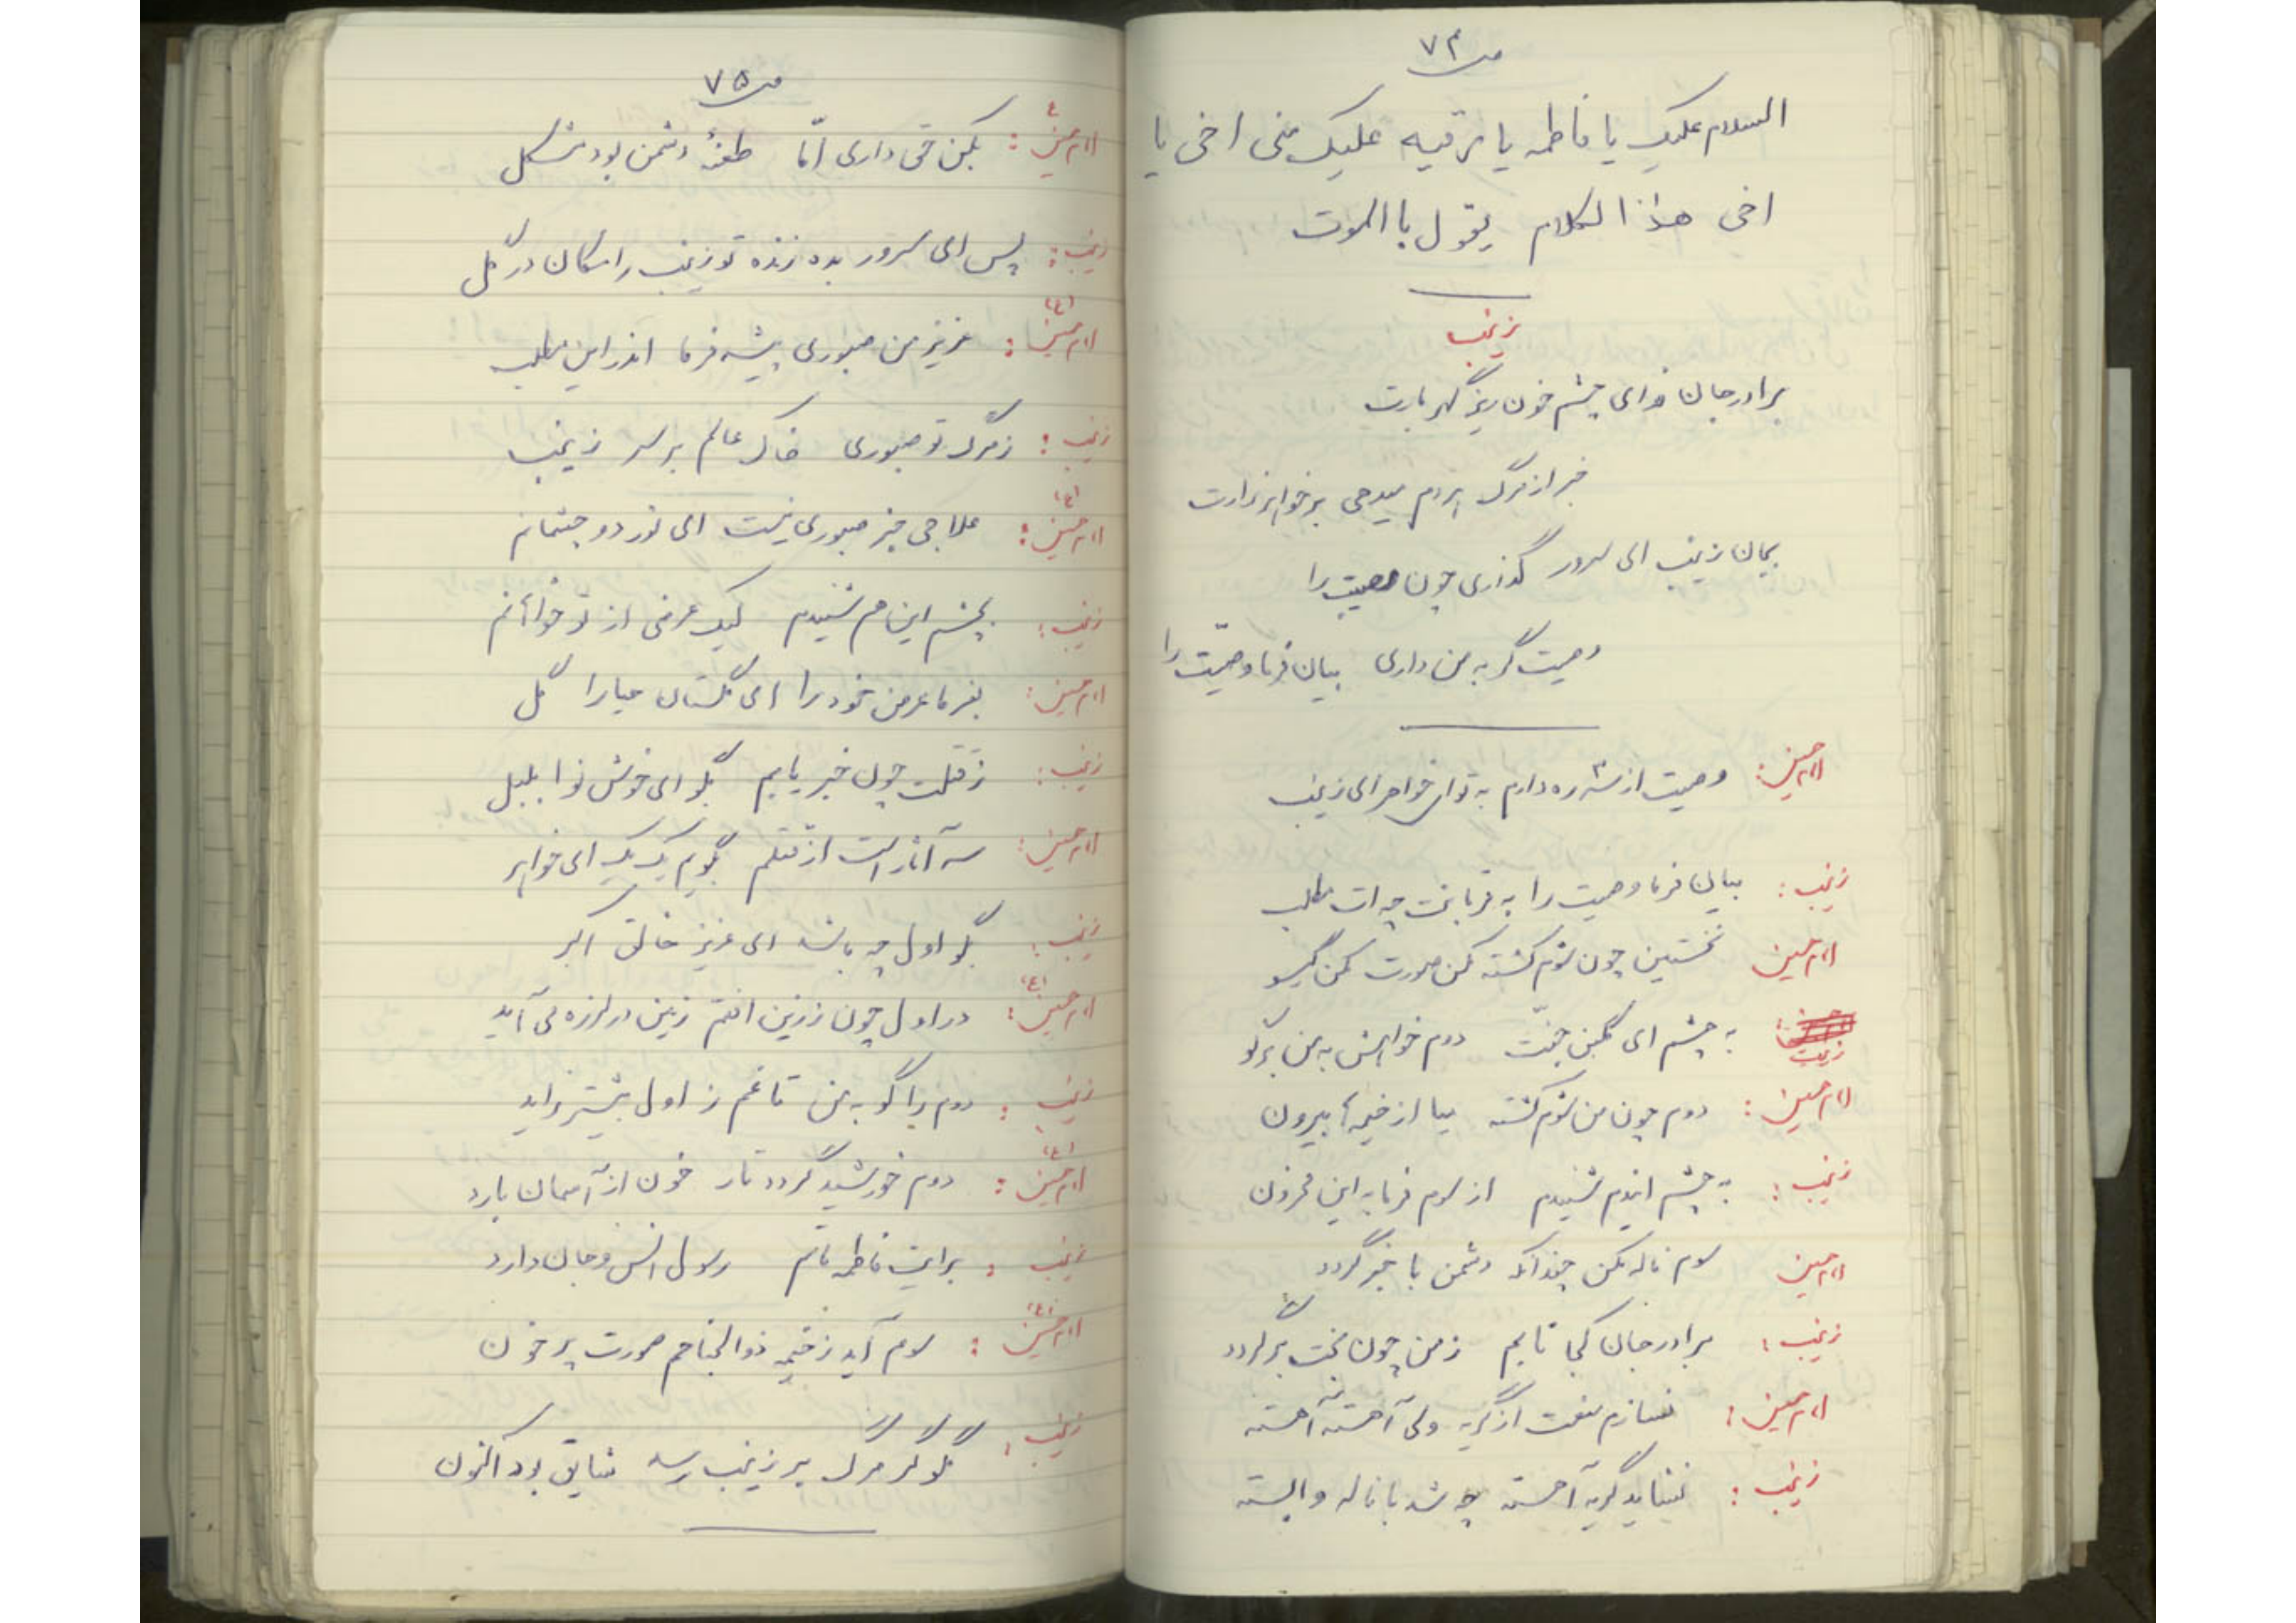 ص ۷۴
السلام علیک یا فاطمه یا رقیه علیک منی اخی یا
اخی هذا الکلام یقول بالموت
زینب
برادر جان فدای چشم خون ریز گهر بارت
خبر از مرگ هر دم میدهی بر خواهر زارت
بمان زینب ای سرور گذاری چون مصیبت را
وصیت گر به من داری بیان فرما وصیّت را
امام حسین: وصیت از سه ره دارم به تو ای خواهر ای زینب
زینب: بیان فرما وصیت را به قربانت چه ات مطلب
امام حسین نخستین چون شوم کشته مکن صورت مکن گیسو
زینب به چشم ای گلبن جنّت دوم خواهش به من برگو
امام حسین: دوم چون من شوم کشته میا از خیمه ها بیرون
زینب: به چشم اینهم شنیدم از سوم فرما به این محزون
امام حسین سوم ناله مکن چندانکه دشمن با خبر گردد
زینب: برادر جان کجا تابم ز من چون بخت برگردد
امام حسین: نسازم منعت از گریه ولی آهسته آهسته
زینب: نشاید گریه آهسته چه شد با ناله وابسته
ص ۷۵
امام حسین ع: بکن حق داری امّا طعنهٔ دشمن بود مشکل
زینب: پس ای سرور بده زنده تو زینب را مکان در گل
امام حسین (ع): عزیز من صبوری پیشه فرما اندر این مطلب
زینب: ز مرگ تو صبوری خاک عالم بر سر زینب
امام حسین (ع): علاجی جز صبوری نیست ای نور دو چشمانم
زینب: بچشم این هم شنیدم لیک عرضی از تو خواهانم
امام حسین: بفرما عرض خود را ای گلستان حیا را گل
زینب: ز قتلت چون خبر یابم بگو ای خوش نوا بلبل
امام حسین: سه آثار است از قتلم بگویم یک یک ای خواهر
زینب: بگو اول چه باشد ای عزیز خالق اکبر
امام حسین (ع): در اول چون ز زین افتم زمین در لرزه می آید
زینب: دوم را گو به من تا غم ز اول بیشتر زاید
امام حسین (ع): دوم خورشید گردد تار خون از آسمان بارد
زینب: برایت فاطمه ماتم رسول انس و جان دارد
امام حسین (ع): سوم آید ز خیمه ذوالجناحم صورت پر خون
زینب: بگو گر مرگ بر زینب رسد شایق بود اکنون